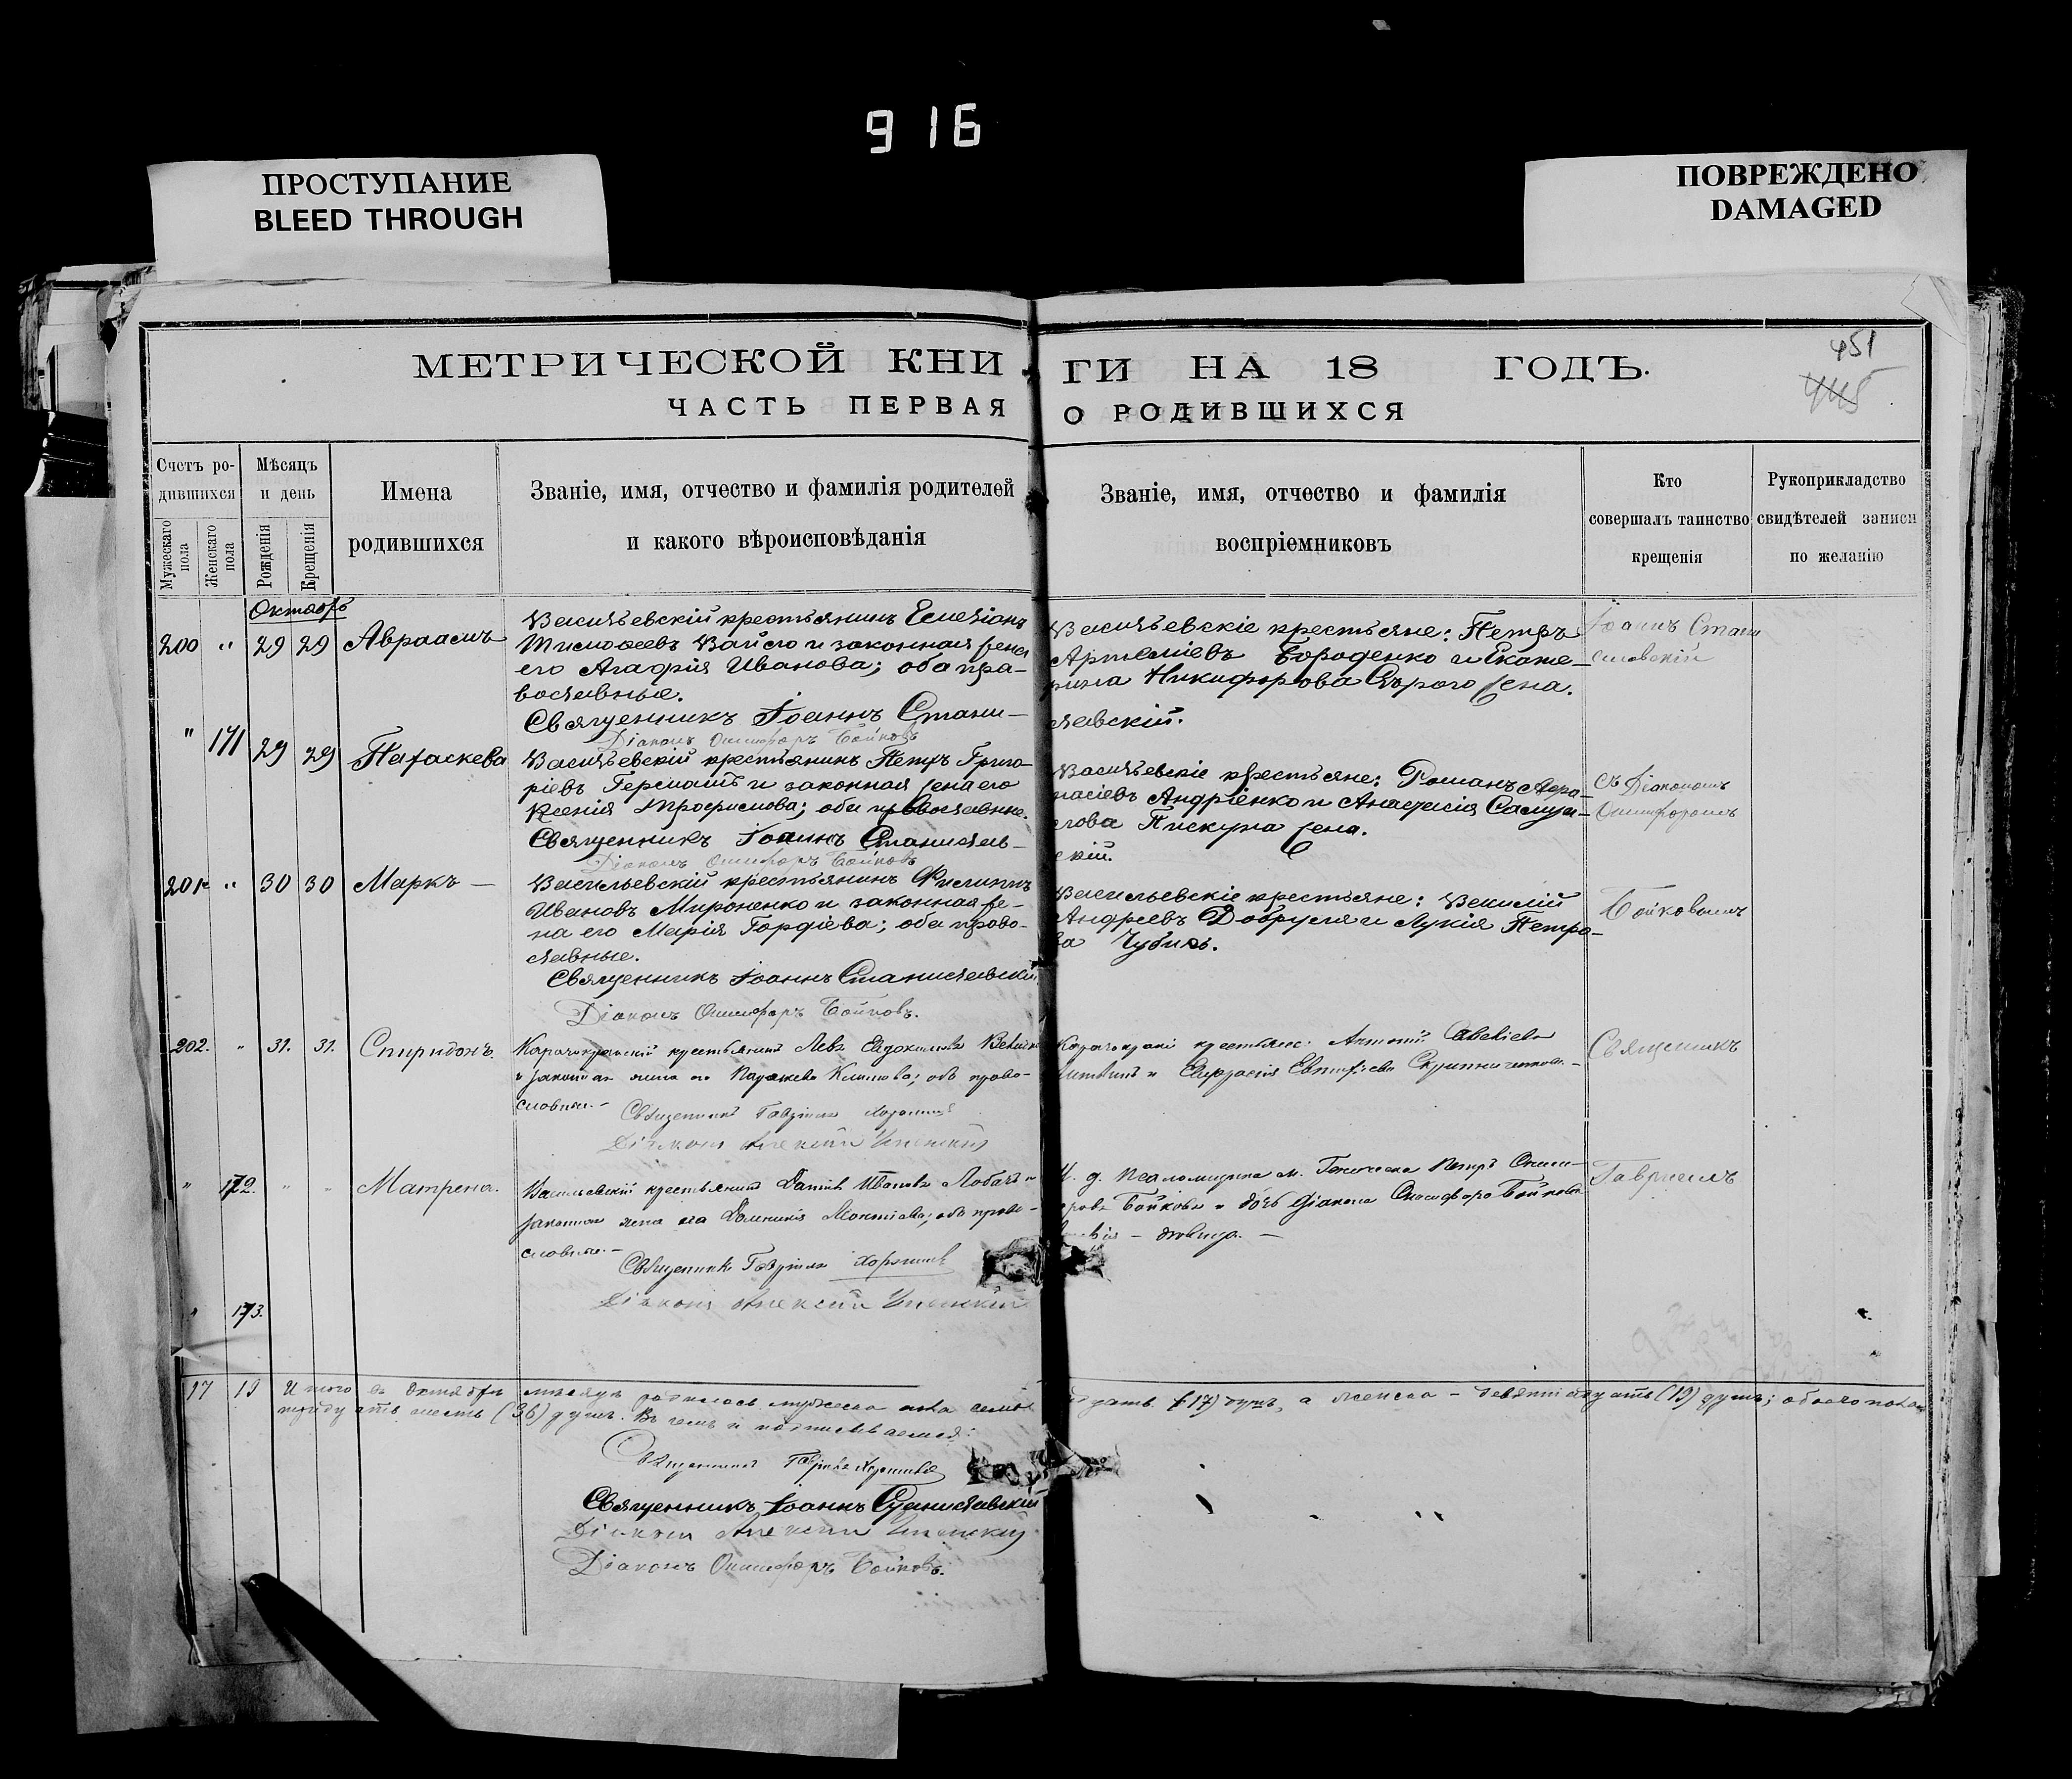 916
ПРОСТУПАНИЕ
BLEED THROUGH
ПОВРЕЖДЕНО
DAMAGED
МЕТРИЧЕСКОЙ КНИ
ГИ НА 18 ГОДЪ.
451
445
ЧАСТЬ ПЕРВАЯ
О РОДИВШИХСЯ
Счетъ ро-
дившихся
Мужескаго пола
Женскаго пола
Мѣсяцъ
и день
Рожденія
Крещенія
Имена
родившихся
Званіе, имя, отчество и фамилія родителей
и какого вѣроисповѣданія
Званіе, имя, отчество и фамилія
воспріемниковъ
Кто
совершалъ таинство
крещенія
Рукоприкладство
свидѣтелей записи
по желанію
Октябрь
200 " 29 29 Авраамъ
Васильевскій крестьянинъ Емеліанъ
Тимоѳеевъ и законная жена
его Агафія Иванова; оба пра-
вославные.
Священникъ Іоаннъ Стани-
Діаконъ Онисифоръ Бойковъ
Васильевскіе крестьяне: Петръ
Артеміевъ Бороденко и Екате-
рина Никифорова Сѣрого жена.
славскій.
Іоаннъ Стани
славскій
" 171 29 29 Параскева
Васильевскій крестьянинъ Петръ Григо-
ріевъ Германъ и законная жена его
Ксенія Трофимова; оба православные.
Священникъ Іоаннъ Станислав-
Діаконъ Онисифоръ Бойковъ
Васильевскіе крестьяне: Романъ Аѳа-
насіевъ Андріенко и Анастасія Самуи-
лова Пискуна жена.
скій.
съ Діакономъ
Онисифоромъ
201 " 30 30 Маркъ —
Васильевскій крестьянинъ Филиппъ
Ивановъ Мироненко и законная же-
на его Марія Гордіева; оба право-
славные.
Священникъ Іоаннъ Станиславскій
Діаконъ Онисифоръ Бойковъ.
Васильевскіе крестьяне: Василій
Андреевъ Добруля и Лукія Петро-
ва Чубиль.
Бойковымъ
202. " 31. 31. Спиридонъ.
крестьянинъ Левъ Евдокимовъ
и законная жена его Параскева Климова; объ право-
славны. —
Священникъ Гавріилъ
Діаконъ Алексій
крестьяне: Антоній Савеліевъ
и Евфросинія
Священникъ
" 172. " " Матрена.
Васильевскій крестьянинъ Даніилъ Ивановъ Лобачъ и
законная жена его Домникія Леонтіева; объ право-
славны. —
Священникъ Гавріилъ
Діаконъ Алексій
И. д. Псаломщика м. Геническа Петръ Ониси-
форовъ Бойковъ и дочь Діакона Онисифора Бойкова
— дѣвица. —
Гавріилъ
" 173.
17 19 Итого въ Октябрѣ мѣсяцѣ родилось мужеска пола семнадцать (17) душъ, а женска — девятнадцать (19) душъ; обоего пола
тридцать шесть (36) душъ. Въ чемъ и подписываемся:
Священникъ Гавріилъ
Священникъ Іоаннъ Станиславскій
Діаконъ Алексій
Діаконъ Онисифоръ Бойковъ.